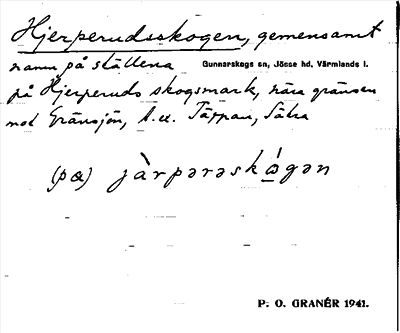 Hjerperudsskogen, gemensamt
namn på ställena Gunnarskogs sn, Jösse hd, Värmlands l.
på Hjerperuds skogsmark, nära gränsen
mot Gränsjön, t.ex. Täppan, Sätra
(på) jàrpərəskógən
P. O. GRANÉR 1941.